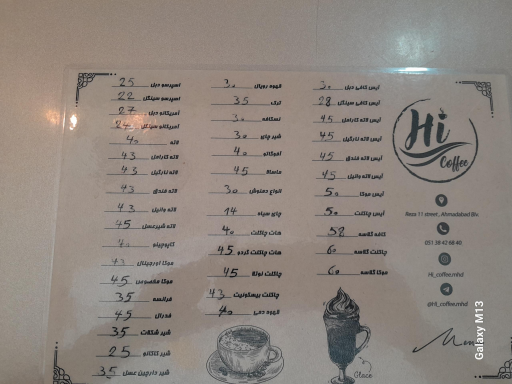 اسپرسو دبل 25
اسپرسو سینگل 22
آمریکانو دبل 27
آمریکانو سینگل 24
لاته 40
لاته کارامل 43
لاته نارگیل 43
لاته فندق 43
لاته وانیل 43
لاته شیرعسل 45
کاپوچینو 40
موکا اورجینال 43
موکا مخصوص 45
فرانسه 35
فدرال 45
شیر شکلات 35
شیر کاکائو 25
شیر دارچین عسل 35
قهوه رویال 30
ترک 35
نسکافه 30
شیر چای 30
آفوگاتو 40
ماسالا 45
انواع دمنوش 30
چای سیاه 14
هات چاکلت 40
هات چاکلت گردو 45
چاکلت نوتلا 45
چاکلت بیسکوئیت 43
قهوه دمی 40
آیس کافی دبل 30
آیس کافی سینگل 28
آیس لاته کارامل 45
آیس لاته نارگیل 45
آیس لاته فندق 45
آیس لاته وانیل 45
آیس موکا 50
آیس چاکلت 50
کافه گلاسه 58
چاکلت گلاسه 60
موکا گلاسه 60
Glace
Hi
Coffee
Reza 11 street, Ahmadabad Blv.
051 38 42 68 40
Hi_coffee.mhd
@Hi_coffee.mhd
Menu
Galaxy M13